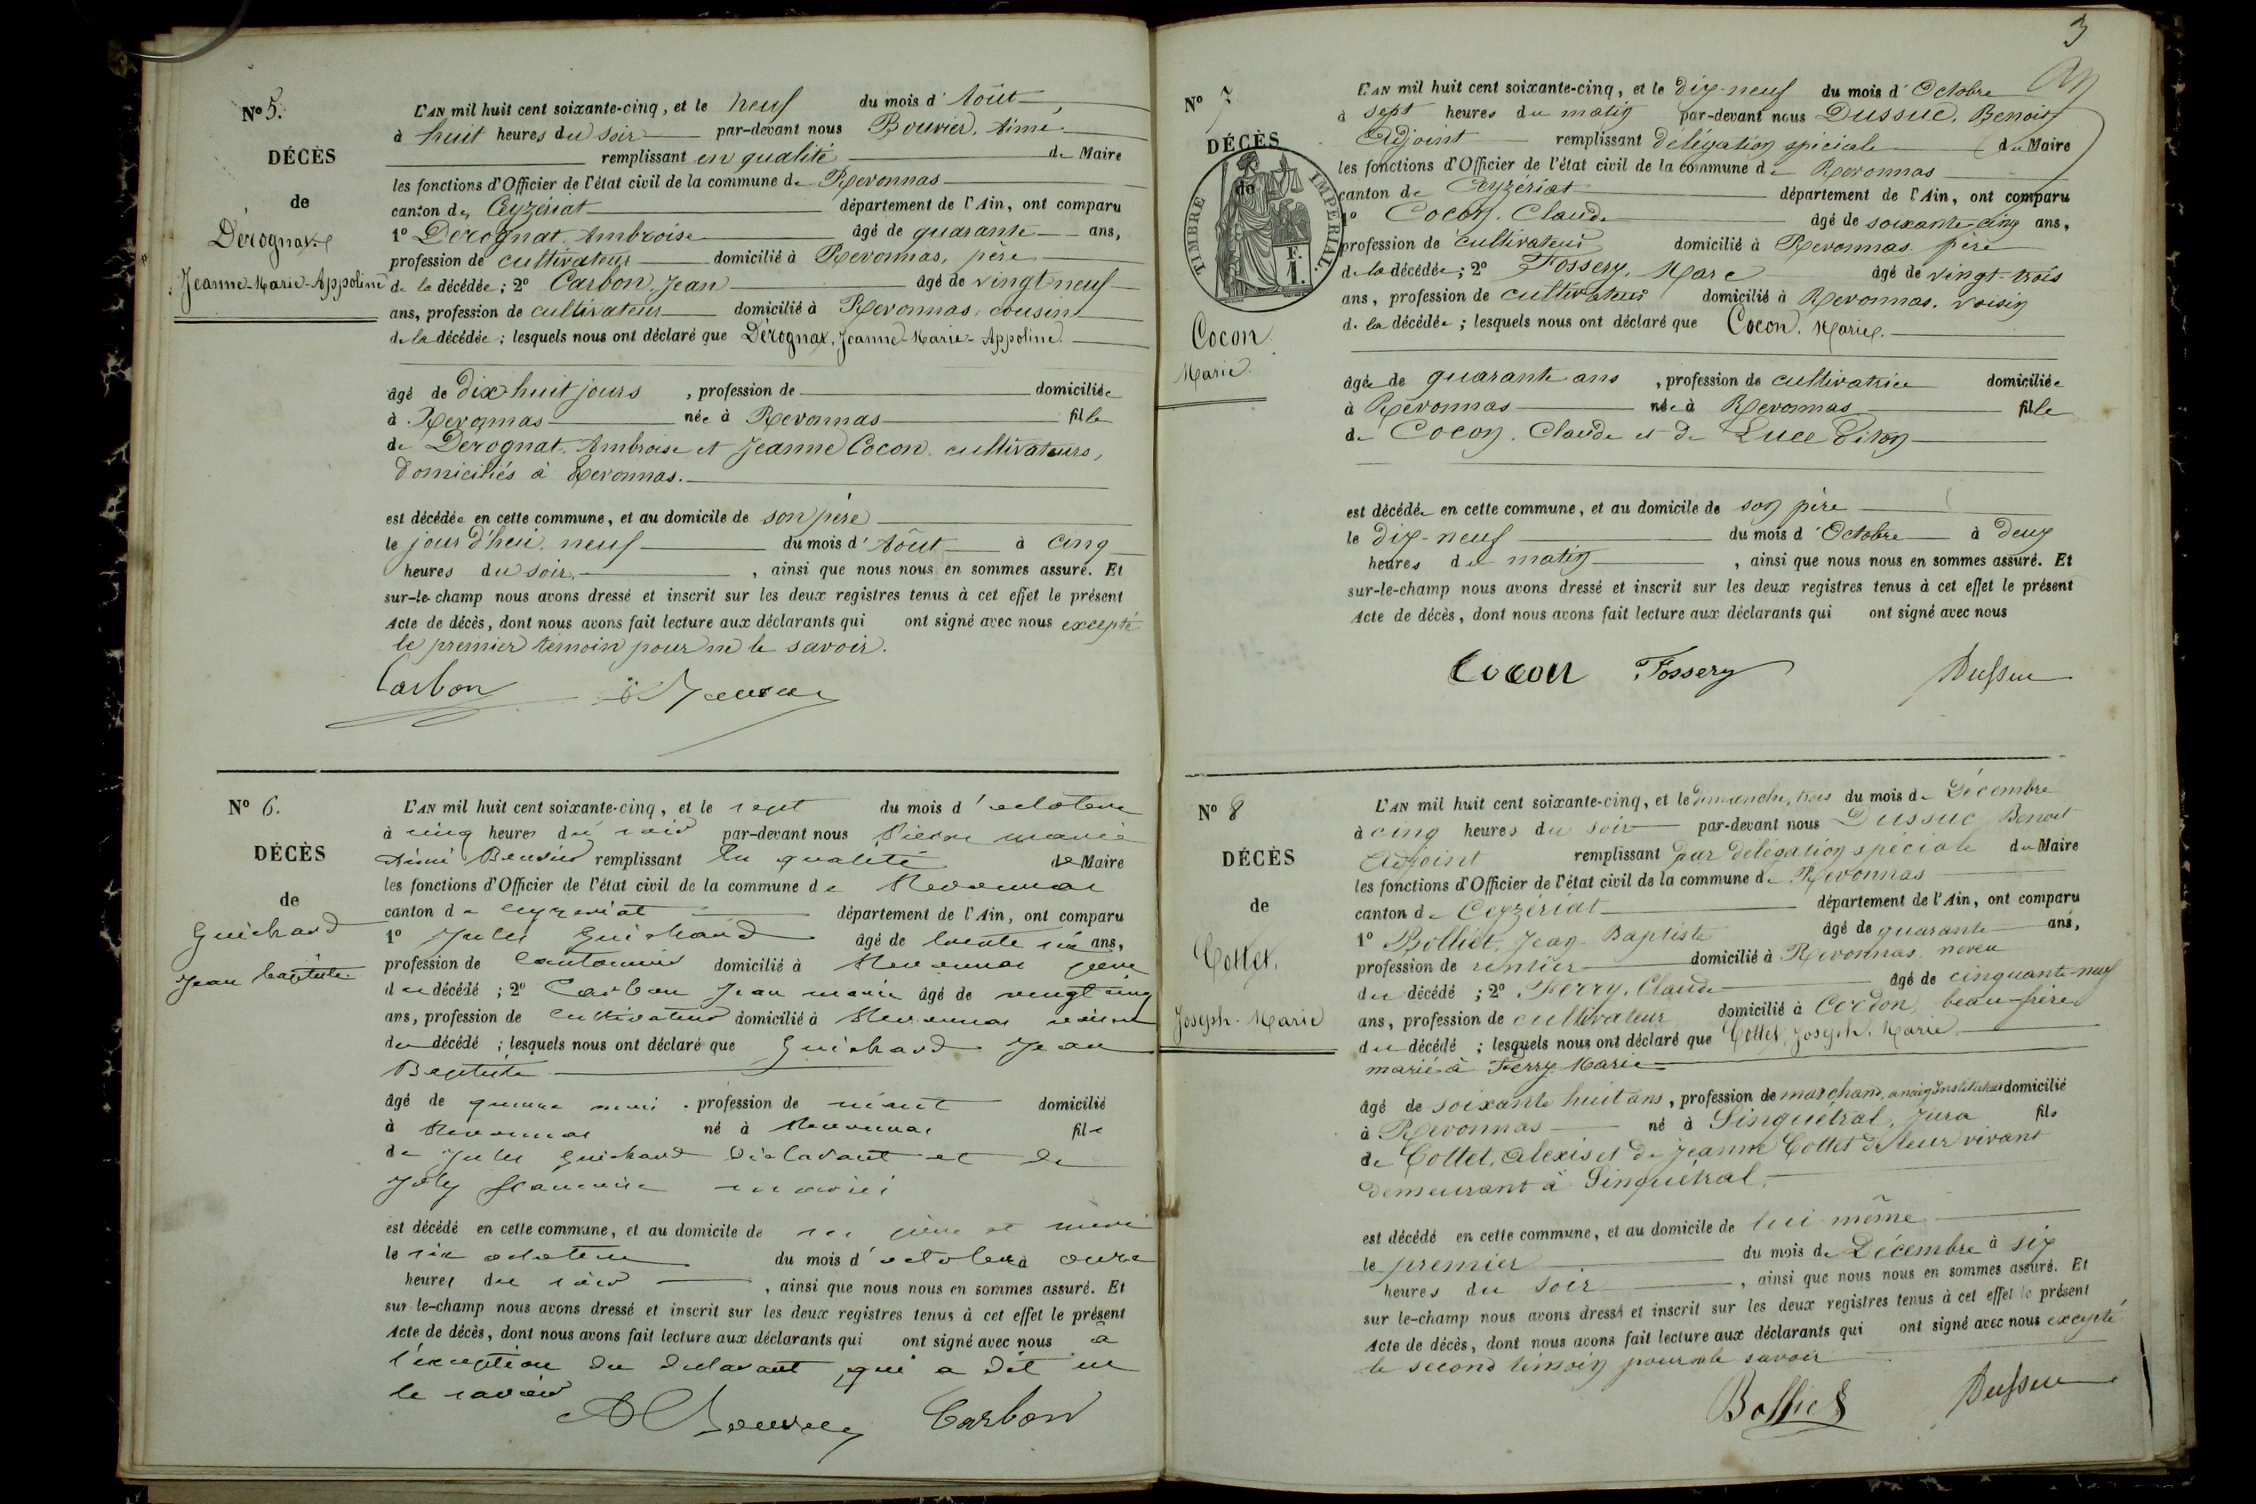 N° 5.
DÉCÈS
de
Dérognat
Jeanne-Marie-Appoline
L'AN mil huit cent soixante-cinq, et le neuf du mois d'Août
à huit heures du soir par-devant nous Bouvier, Aimé
remplissant en qualité de Maire
les fonctions d'Officier de l'état civil de la commune de Revonnas
canton de Ceyzériat département de l'Ain, ont comparu
1° Dérognat, Ambroise âgé de quarante ans,
profession de cultivateur domicilié à Revonnas, père
de la décédée ; 2° Carbon, Jean âgé de vingt-neuf
ans, profession de cultivateur domicilié à Revonnas, cousin
de la décédée ; lesquels nous ont déclaré que Dérognat, Jeanne-Marie-Appoline
âgé de dix huit jours , profession de domiciliée
à Revonnas née à Revonnas fille
de Dérognat, Ambroise et Jeanne Cocon, cultivateurs,
domiciliés à Revonnas.
est décédée en cette commune, et au domicile de son père
le jour d'hui neuf du mois d'Août à cinq
heures du soir , ainsi que nous nous en sommes assuré. Et
sur-le-champ nous avons dressé et inscrit sur les deux registres tenus à cet effet le présent
Acte de décès, dont nous avons fait lecture aux déclarants qui ont signé avec nous excepté
le premier témoin pour ne le savoir.
Carbon
N° 6.
DÉCÈS
de
Guichard
Jean baptiste
L'AN mil huit cent soixante-cinq, et le sept du mois d'octobre
à cinq heures du soir par-devant nous Pierre marie
Aimé Bouvier remplissant en qualité de Maire
les fonctions d'Officier de l'état civil de la commune de Revonnas
canton de Ceyzeriat département de l'Ain, ont comparu
1° Jules Guichard âgé de trente six ans,
profession de Cantonnier domicilié à Revonnas père
du décédé ; 2° Carbon Jean marie âgé de vingt cinq
ans, profession de Cultivateur domicilié à Revonnas voisin
du décédé ; lesquels nous ont déclaré que Guichard Jean
Baptiste
âgé de quinze mois . profession de néant domicilié
à Revonnas né à Revonnas fils
de Jules Guichard déclarant et de
Joly mariés
est décédé en cette commune, et au domicile de ses père et mère
le six octobre du mois d'octobre à onze
heures du soir , ainsi que nous nous en sommes assuré. Et
sur-le-champ nous avons dressé et inscrit sur les deux registres tenus à cet effet le présent
Acte de décès, dont nous avons fait lecture aux déclarants qui ont signé avec nous à
l'exception du déclarant qui a dit ne
le savoir
Carbon
3
N° 7
DÉCÈS
de
TIMBRE IMPÉRIAL
F.
1.
Cocon
Marie
L'AN mil huit cent soixante-cinq, et le dix-neuf du mois d'Octobre
à sept heures du matin par-devant nous Dussuc, Benoit
Adjoint remplissant délégation spéciale du Maire
les fonctions d'Officier de l'état civil de la commune de Revonnas
canton de Ceyzériat département de l'Ain, ont comparu
1° Cocon, Claude âgé de soixante-cinq ans,
profession de cultivateur domicilié à Revonnas, père
de la décédée ; 2° Fossery, Marc âgé de vingt-trois
ans, profession de cultivateur domicilié à Revonnas, voisin
de la décédée ; lesquels nous ont déclaré que Cocon, Marie
âgée de quarante ans , profession de cultivatrice domiciliée
à Revonnas née à Revonnas fille
de Cocon, Claude et de Luce Piton
est décédée en cette commune, et au domicile de son père
le dix-neuf du mois d'Octobre à deux
heures du matin , ainsi que nous nous en sommes assuré. Et
sur-le-champ nous avons dressé et inscrit sur les deux registres tenus à cet effet le présent
Acte de décès, dont nous avons fait lecture aux déclarants qui ont signé avec nous
Cocon Fossery Dussuc
N° 8
DÉCÈS
de
Cottet,
Joseph-Marie
L'AN mil huit cent soixante-cinq, et le dimanche, trois du mois de Décembre
à cinq heures du soir par-devant nous Dussuc, Benoit
Adjoint remplissant par délégation spéciale du Maire
les fonctions d'Officier de l'état civil de la commune de Revonnas
canton de Ceyzériat département de l'Ain, ont comparu
1° Bolliet, Jean-Baptiste âgé de quarante ans,
profession de rentier domicilié à Revonnas, neveu
du décédé ; 2° Ferry, Claude âgé de cinquante-neuf
ans, profession de cultivateur domicilié à Cordon, beau-frère
du décédé ; lesquels nous ont déclaré que Cottet, Joseph-Marie
marié à Ferry Marie
âgé de soixante huit ans, profession de marchand, ancien Instituteur domicilié
à Revonnas né à Sinquétral, Jura fils
de Cottet, Alexis et de Jeanne Cottet de leur vivant
demeurant à Sinquétral.
est décédé en cette commune, et au domicile de lui-même
le premier du mois de Décembre à six
heures du soir , ainsi que nous nous en sommes assuré. Et
sur le-champ nous avons dressé et inscrit sur les deux registres tenus à cet effet le présent
Acte de décès, dont nous avons fait lecture aux déclarants qui ont signé avec nous excepté
le second témoin pour ne le savoir
Bolliet Dussuc